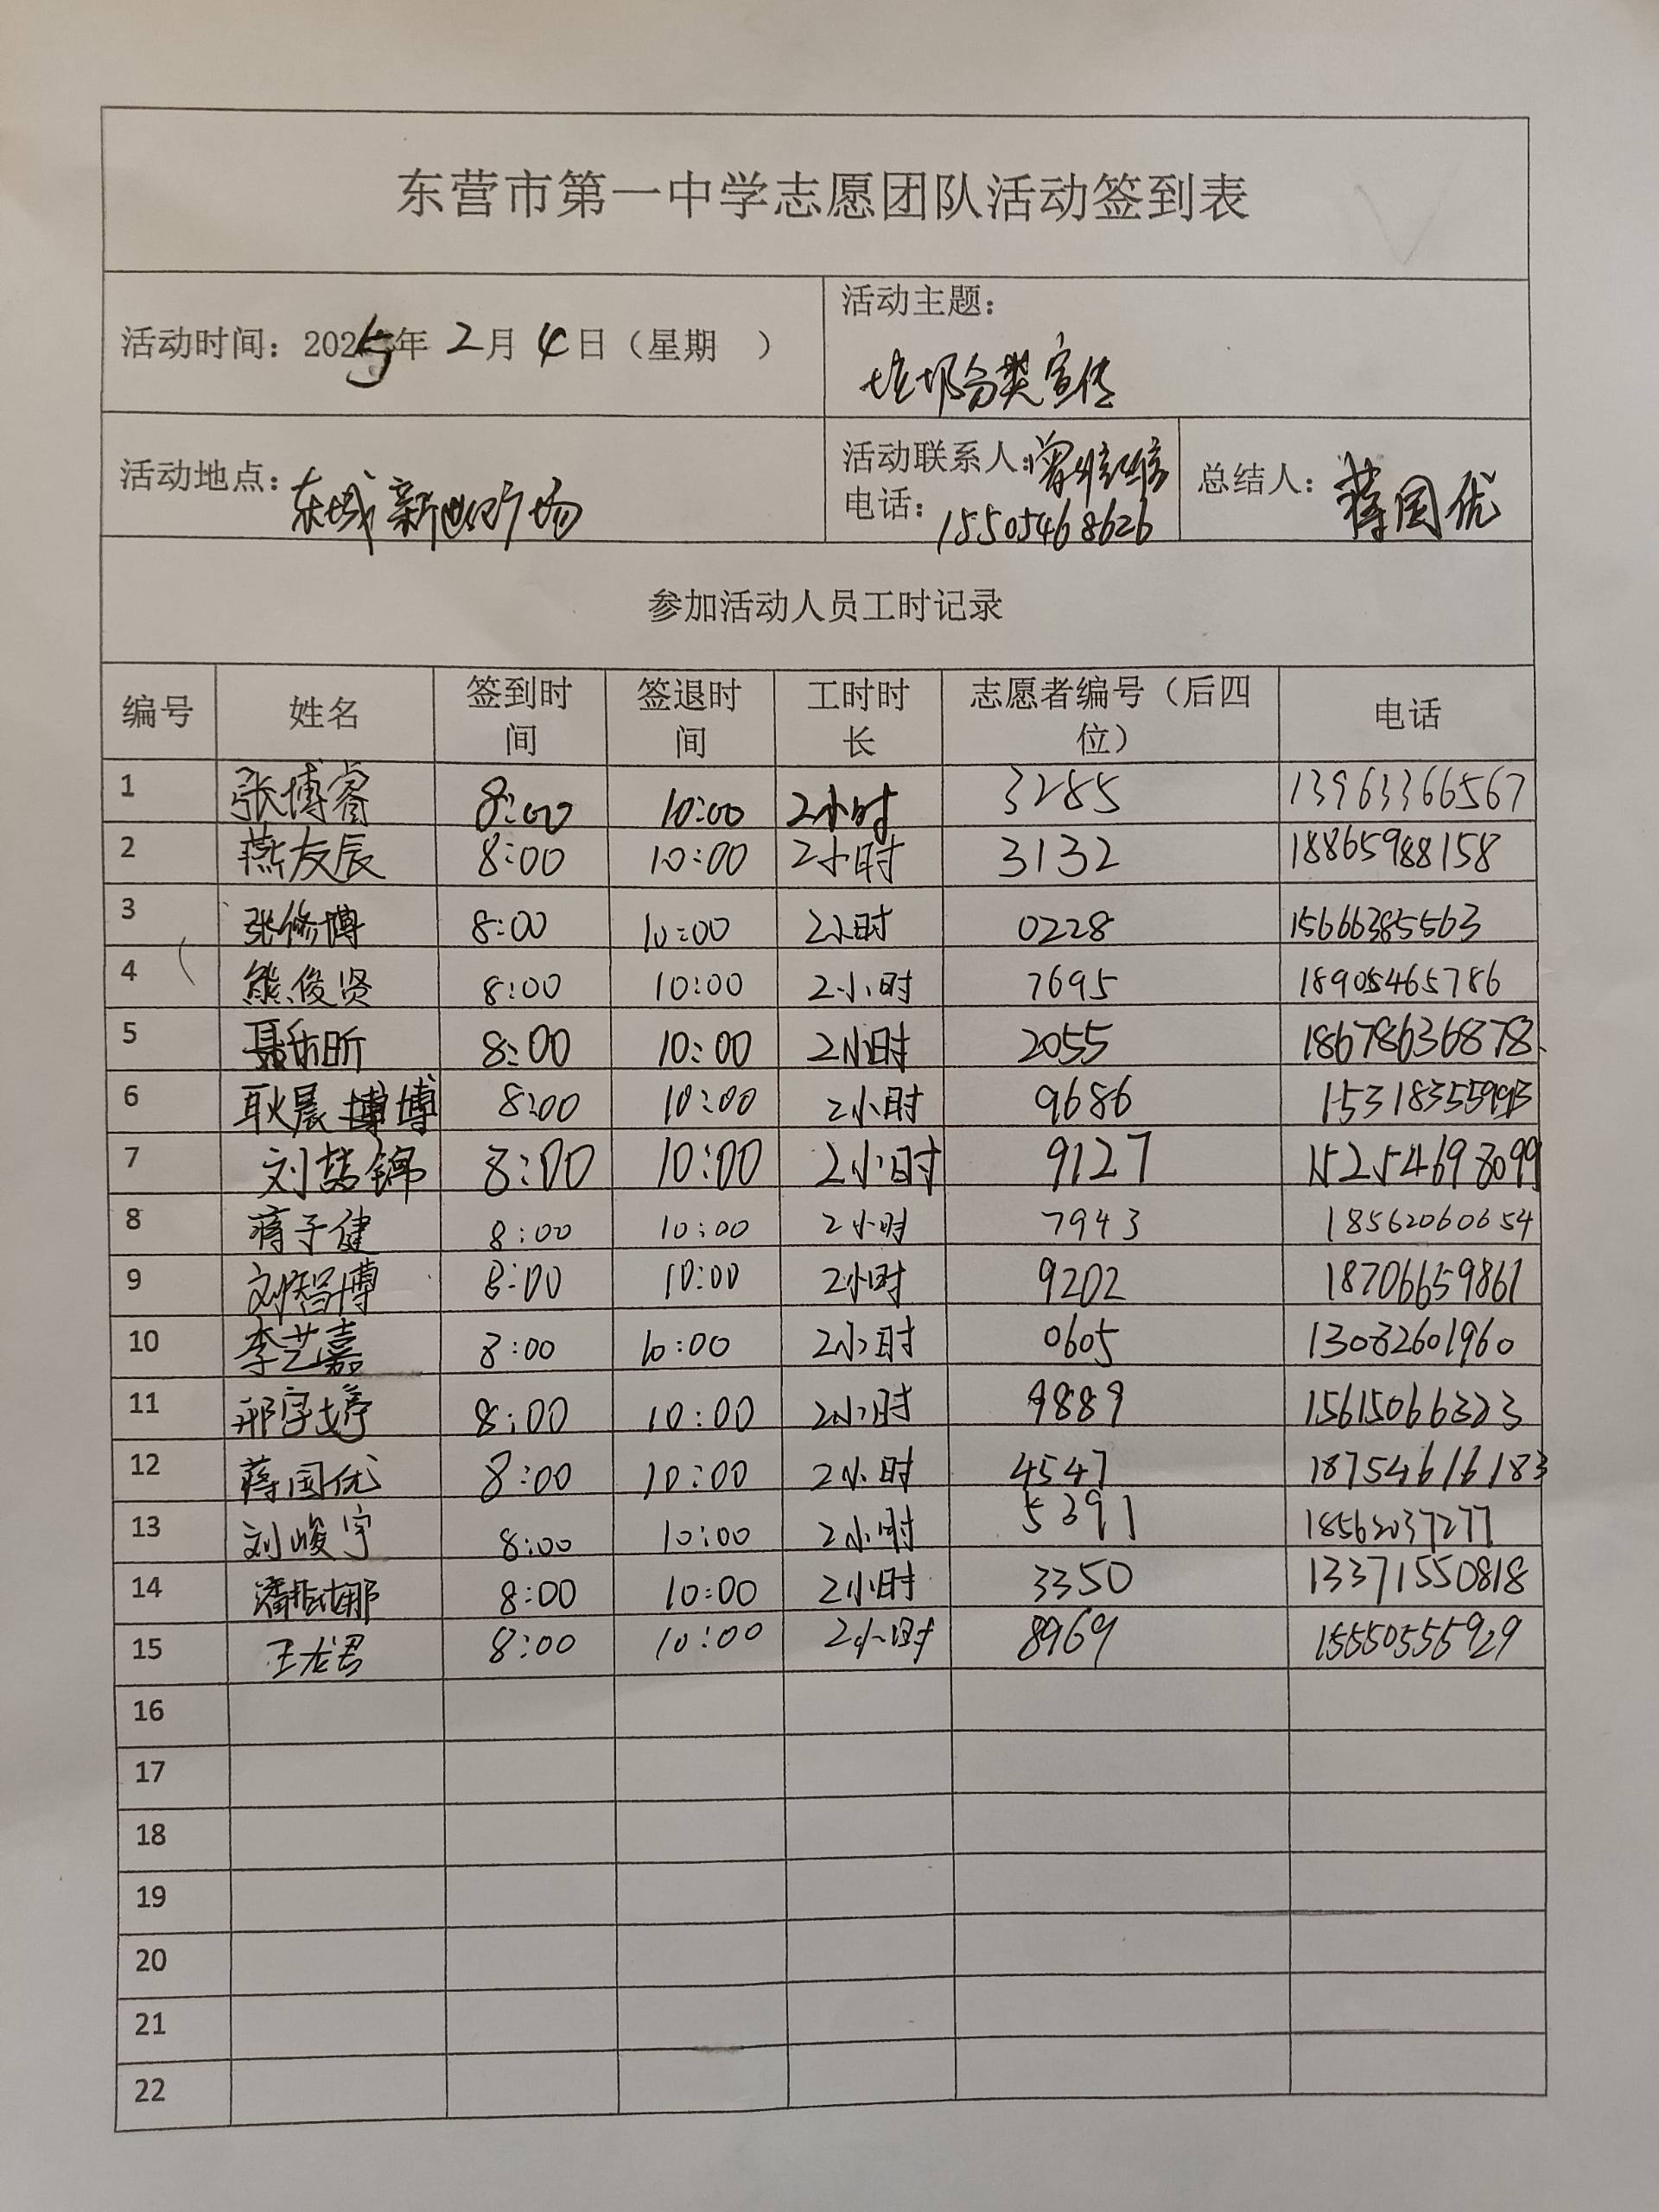 东营市第一中学志愿团队活动签到表
活动时间：2025年 2月4日（星期 ）
活动主题：
垃圾分类宣传
活动地点：东城新世纪广场
活动联系人：
电话：15505468626
总结人：蒋国优
参加活动人员工时记录
编号 姓名 签到时间 签退时间 工时时长 志愿者编号（后四位） 电话
1 张博睿 8:00 10:00 2小时 3285 13963366567
2 燕友辰 8:00 10:00 2小时 3132 18865988158
3 张修博 8:00 10:00 2小时 0228 15666385563
4 熊俊贤 8:00 10:00 2小时 7695 18905465786
5 聂乐昕 8:00 10:00 2小时 2055 18678636878
6 耿晨博 8:00 10:00 2小时 9686
7 刘喆锦 8:00 10:00 2小时 9127 15254698099
8 蒋子健 8:00 10:00 2小时 7943 18562060654
9 刘智博 8:00 10:00 2小时 9202 18706659861
10 李艺嘉 8:00 10:00 2小时 0605 13082601960
11 邢宇婷 8:00 10:00 2小时 9889 15615066323
12 蒋国优 8:00 10:00 2小时 4547 18754616183
13 刘峻宇 8:00 10:00 2小时 5391 18562037277
14 8:00 10:00 2小时 3350 13371550818
15 王龙君 8:00 10:00 2小时 8969 15550555929
16
17
18
19
20
21
22